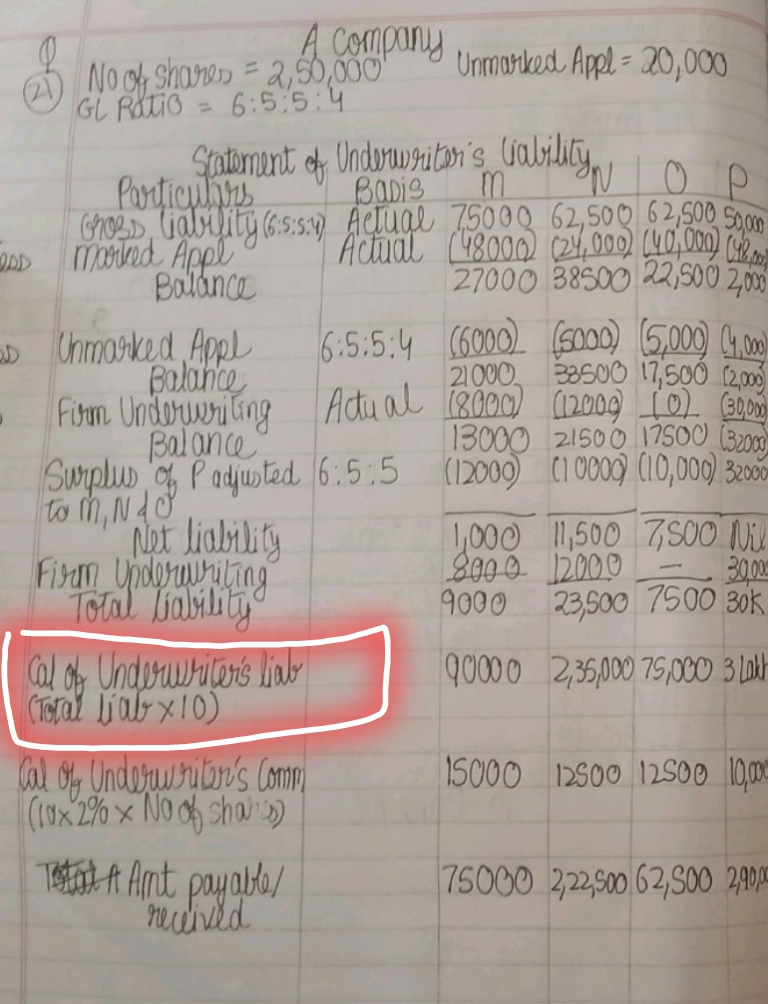 Q 21
A Company
No of shares = 2,50,000 Unmarked Appl = 20,000
GL Ratio = 6:5:5:4
Statement of Underwriter's Liability
Particulars Basis M N O P
Gross Liability (6:5:5:4) Actual 75000 62,500 62,500 50,000
Marked Appl Actual (48000) (24,000) (40,000)
Balance 27000 38500 22,500 2,000
Unmarked Appl 6:5:5:4 (6000) (5000) (5,000) (4,000)
Balance 21000 33500 17,500 (2,000)
Firm Underwriting Actual (8000) (12000) (0) (30,000)
Balance 13000 21500 17500 (32000)
Surplus of P adjusted 6:5:5 (12000) (10000) (10,000) 32000
to M, N & O
Net liability 1,000 11,500 7,500 Nil
Firm Underwriting 8000 12000 — 30,000
Total Liability 9000 23,500 7500 30K
Cal of Underwriter's liab 90000 2,35,000 75,000 3 Lakh
(Total Liab x 10)
Cal of Underwriter's Comm 15000 12500 12500 10,000
(10 x 2% x No of shares)
Amt payable/ 75000 2,22,500 62,500 2,90,00
received